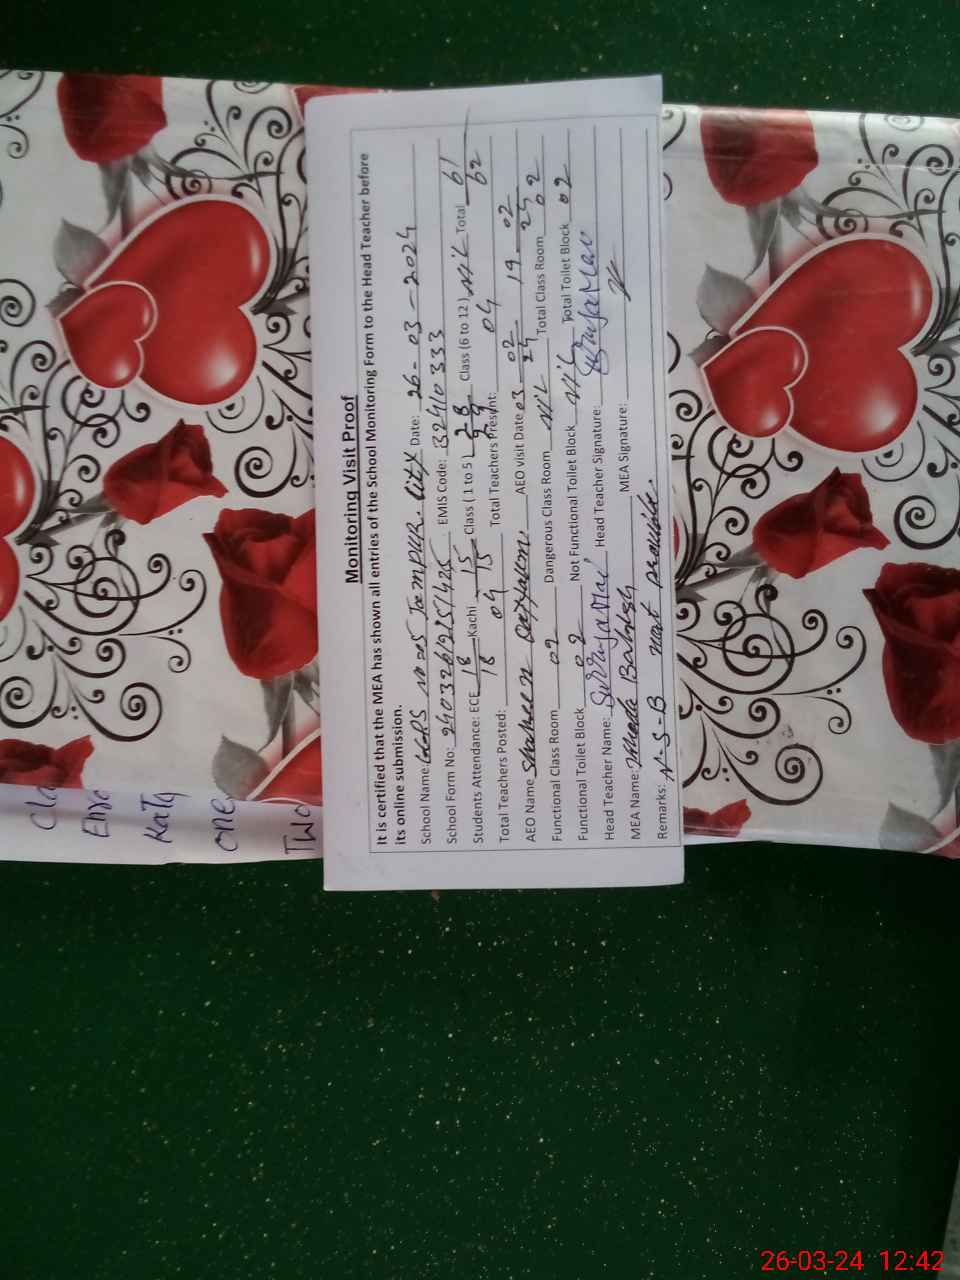 Monitoring Visit Proof
It is certified that the MEA has shown all entries of the School Monitoring Form to the Head Teacher before
its online submission.
School Name: GGPS Date: 26-03-2024
School Form No: EMIS Code: 32410333
Students Attendance: ECE 18/18 Kachi 15/15 Class (1 to 5) 28/29 Class (6 to 12) Nil Total 61/62
Total Teachers Posted: 04 Total Teachers Present: 04
AEO Name Shaheen AEO visit Date 03 02/24 19 02/24
Functional Class Room 02 Dangerous Class Room Nil Total Class Room 02
Functional Toilet Block 02 Not Functional Toilet Block Nil Total Toilet Block 02
Head Teacher Name: Head Teacher Signature:
MEA Name: MEA Signature:
Remarks: N-S-B not provide.
Cla
Kat
one
Two
26-03-24 12:42